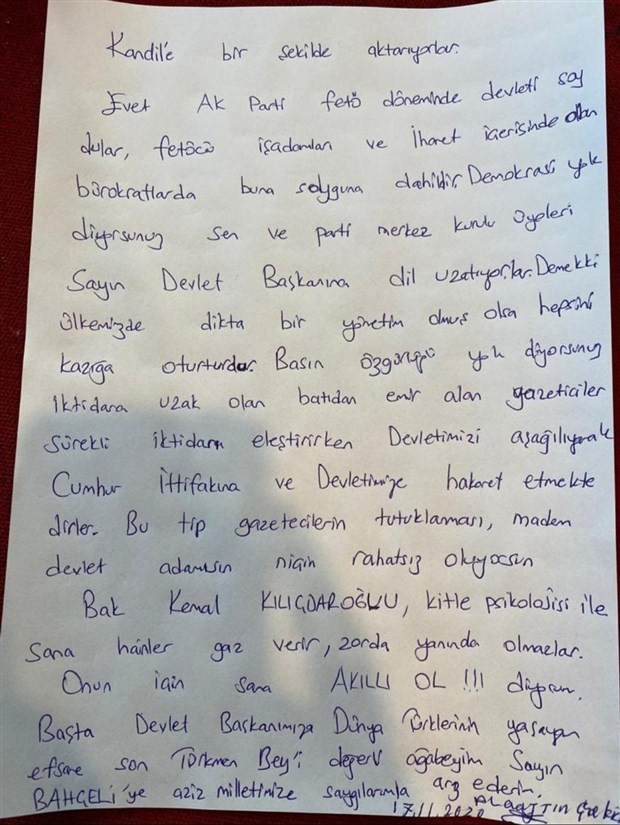 Kandil'e bir şekilde aktarıyorlar.
Evet AK Parti fetö döneminde devleti soy
dular, fetöcü işadamları ve ihanet içerisinde olan
bürokratlarda buna soyguna dahildir. Demokrasi yok
diyorsunuz sen ve parti merkez kurulu üyeleri
Sayın Devlet Başkanına dil uzatıyorlar. Demekki
ülkemizde dikta bir yönetim olmuş olsa hepsini
kazığa oturturdu. Basın özgürlüğü yok diyorsunuz
iktidara uzak olan batıdan emir alan gazeticiler
sürekli iktidarı eleştirirken Devletimizi aşağılıyarak
Cumhur İttifakına ve Devletimize hakaret etmekte
dirler. Bu tip gazetecilerin tutuklaması, madem
devlet adamısın niçin rahatsız oluyorsun
Bak Kemal KILIÇDAROĞLU, kitle psikolojisi ile
sana hainler gaz verir, zorda yanında olmazlar.
Onun için sana AKILLI OL !!! diyorum.
Başta Devlet Başkanımıza Dünya Türklerinin yaşayan
efsane son Türkmen Bey'i değerli ağabeyim Sayın
BAHÇELİ'ye aziz milletimize saygılarımla arz ederim.
17.11.2020 Alaattin Çakıcı